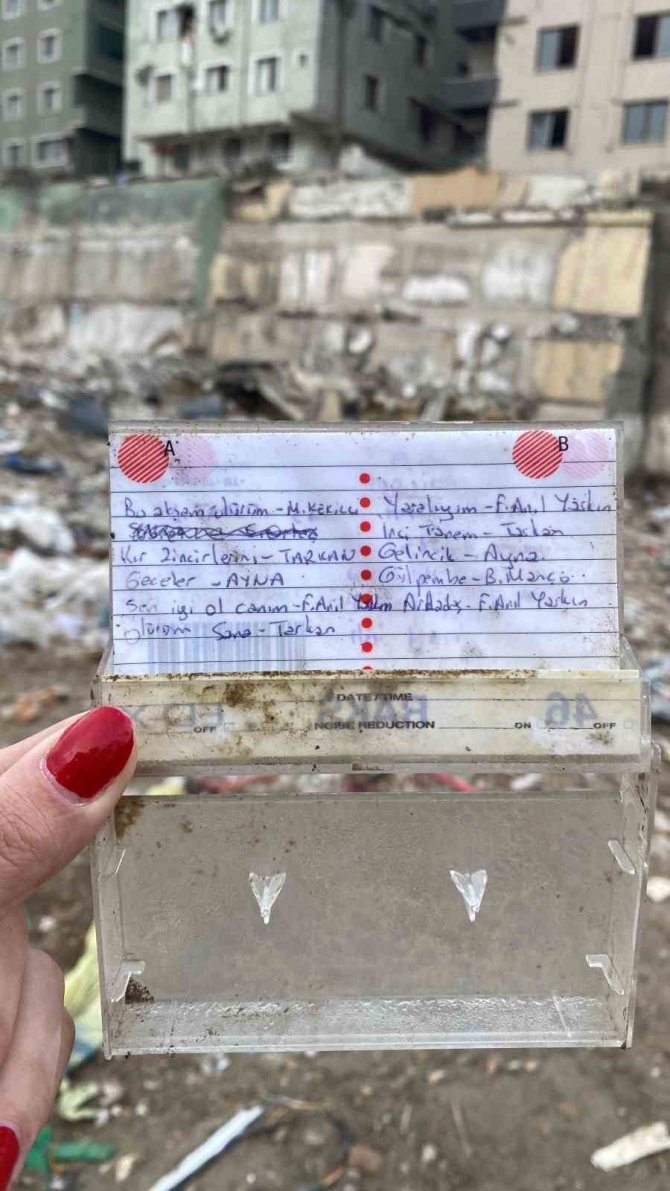 A
B
Bu akşam ölürüm - M. KEKİLLİ
Yaralıyım - F. Anıl Yaskın
İnci Tanem - Tarkan
Kır Zincirlerini - TARKAN
Gelincik - Ayna
Geceler - AYNA
Gülpembe - B. Manço
Sen iyi ol canım - F. Anıl
Arkadaş - F. Anıl Yaskın
Ölürüm Sana - Tarkan
DATE/TIME
NOISE REDUCTION
OFF
ON
OFF
46